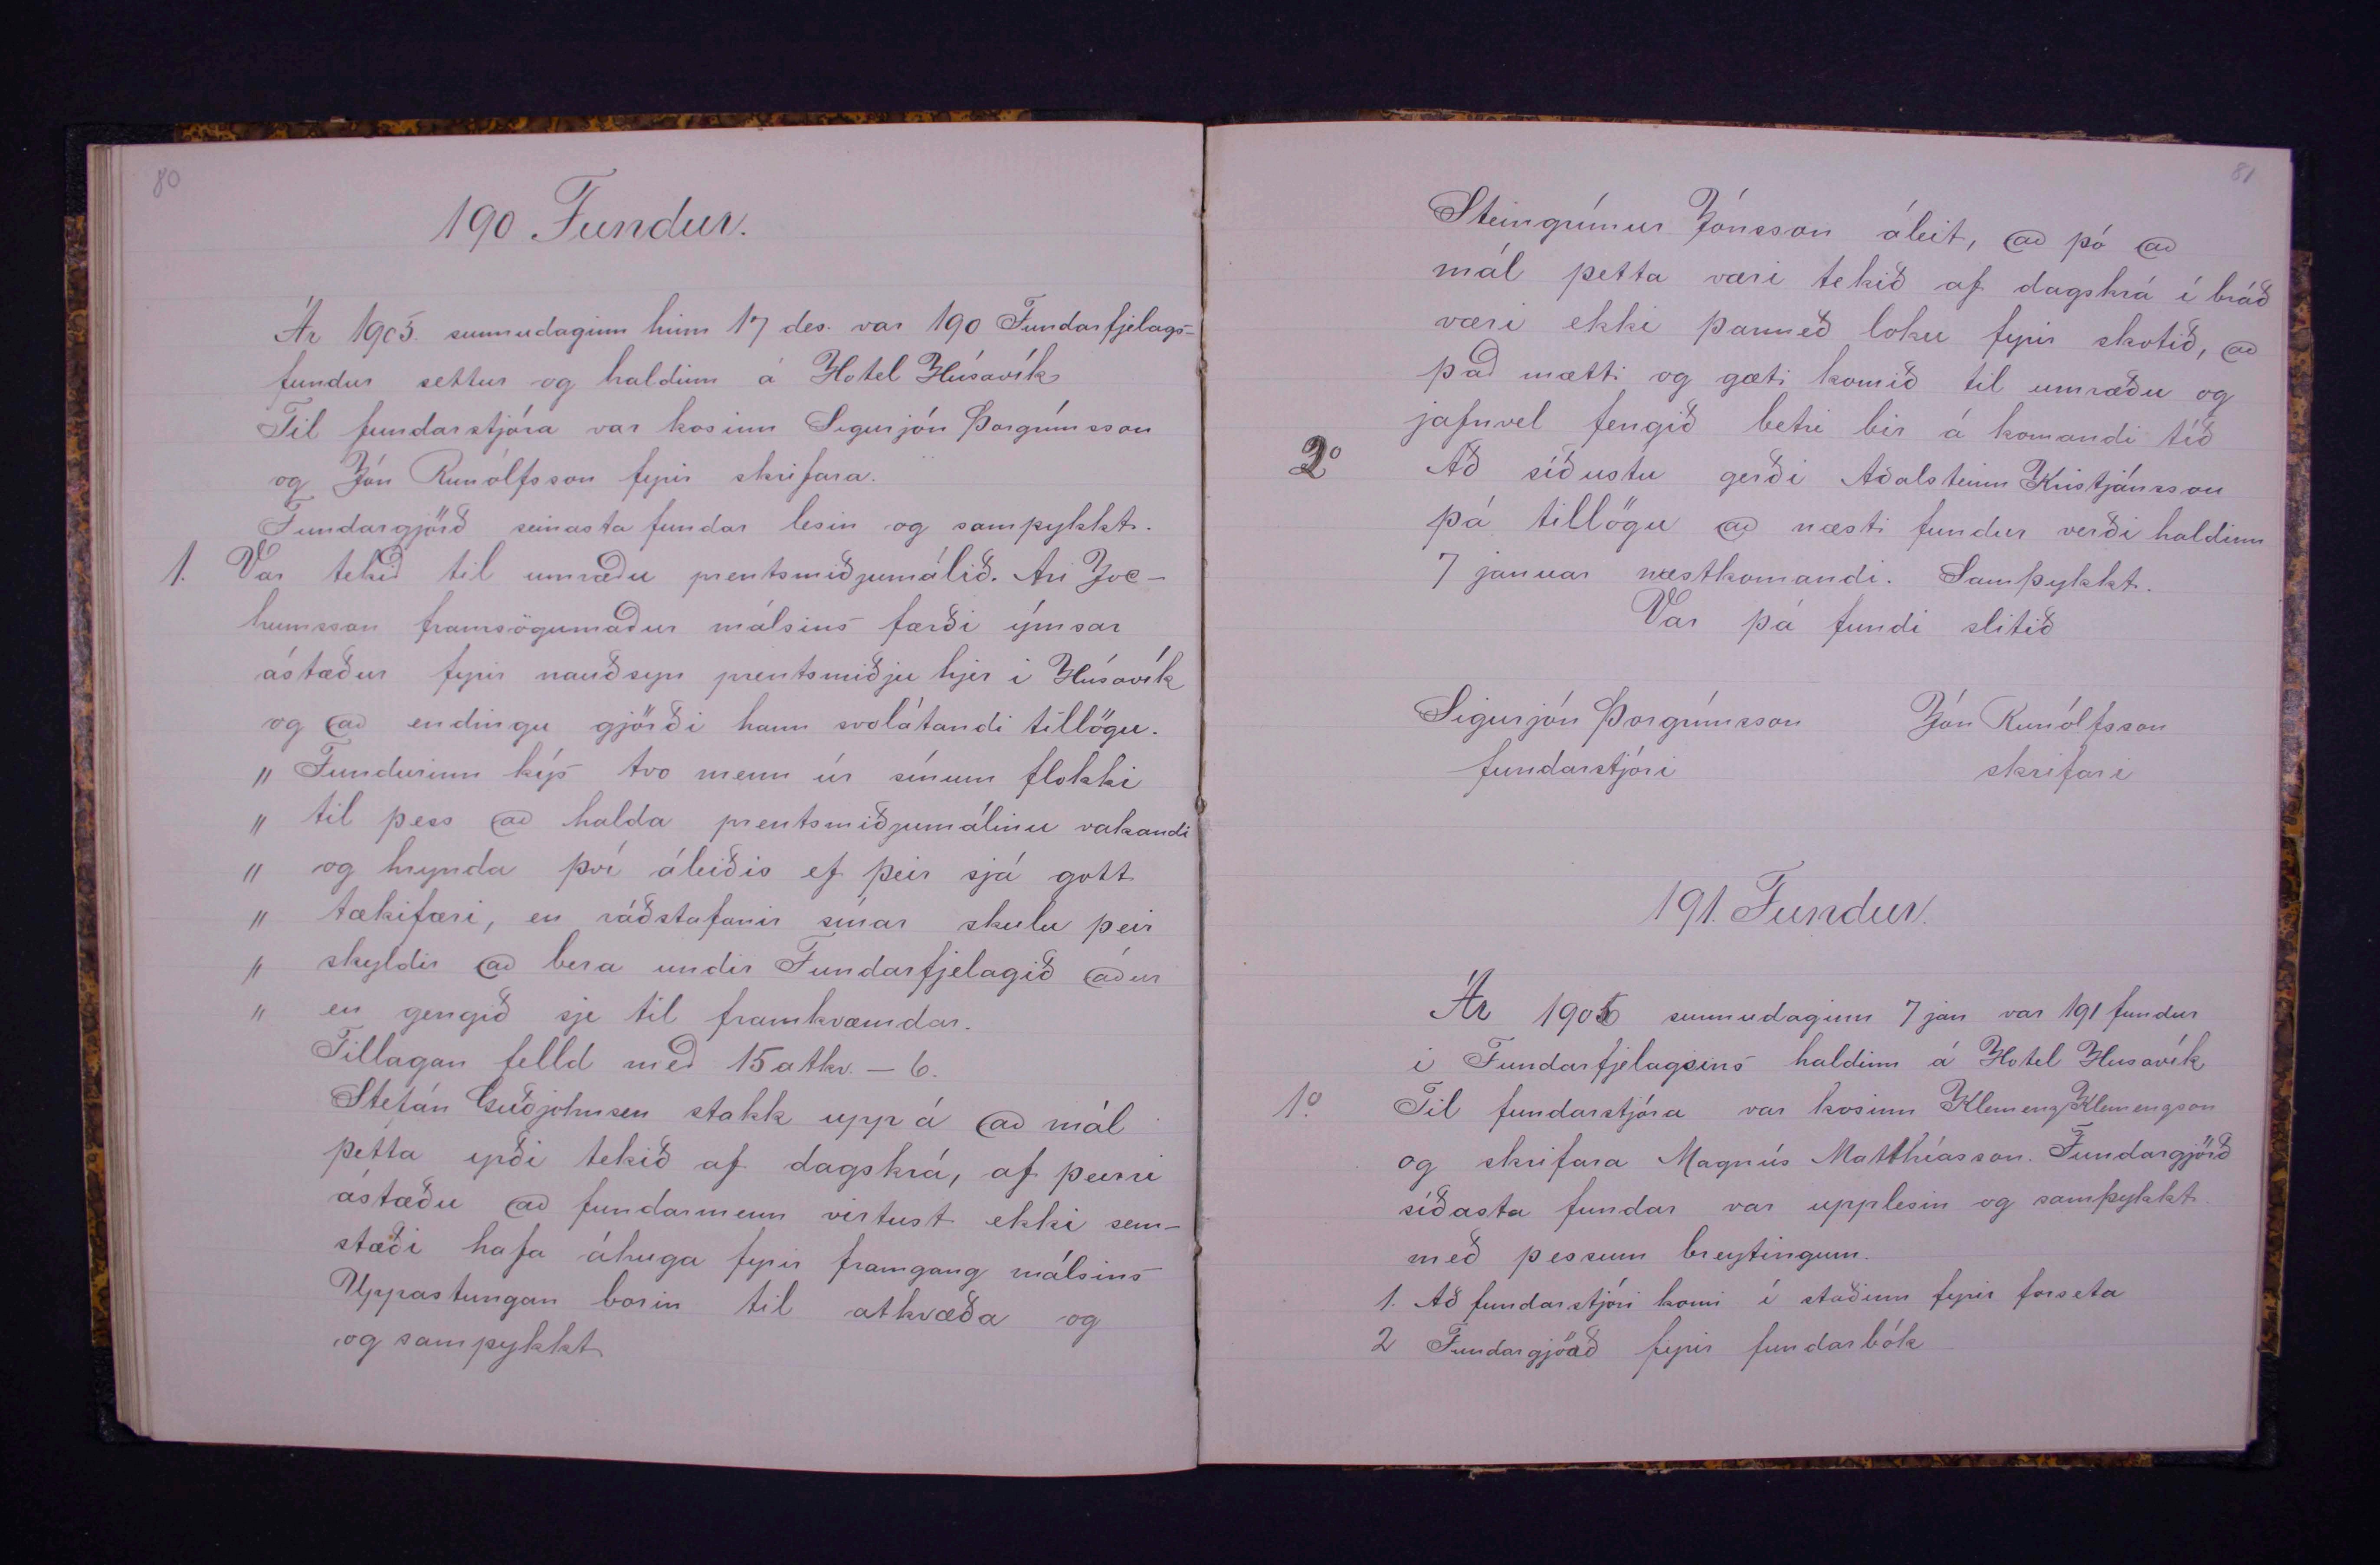 80
190 Fundur.
Ár 1905. sunnudaginn hinn 17 des. var 190 Fundarfjelags-
fundur settur og haldinn á Hotel Húsavík
Til fundarstjóra var kosinn Sigurjón Þorgrímsson
og Jón Runólfsson fyrir skrifara.
Fundargjörð seinasta fundar lesin og samþykkt.
1. Var tekið til umræðu prentsmiðjumálið. Ari Joc-
humsson framsögumaður málsins færði ýmsar
ástæður fyrir nauðsyn prentsmiðju hjer í Húsavík
og að endingu gjörði hann svolátandi tillögu.
" Fundurinn kýs tvo menn úr sínum flokki
" til þess að halda prentsmiðjumálinu vakandi
" og hrynda því áleiðis ef þeir sjá gott
" tækifæri, en ráðstafanir sínar skulu þeir
" skyldir að bera undir Fundarfjelagið áður
" en gengið sje til framkvæmdar.
Tillagan felld með 15 atkv. – 6.
Stefán Guðjohnsen stakk upp á að mál
þetta yrði tekið af dagskrá, af þeirri
ástæðu að fundarmenn virtust ekki sem-
stæði hafa áhuga fyrir framgang málsins
Uppastungan borin til atkvæða og
og samþykkt
81
Steingrímur Jónsson áleit, að þó að
mál þetta væri tekið af dagskrá í bráð
væri ekki þarmeð loku fyrir skotið, að
það mætti og gæti komið til umræðu og
jafnvel fengið betri bir á komandi tíð
2° Að síðustu gerði Aðalsteinn Kristjánsson
þá tillögu að næsti fundur verði haldinn
7 januar næstkomandi. Samþykkt.
Var þá fundi slitið
Sigurjón Þorgrímsson Jón Runólfsson
fundarstjóri skrifari
191. Fundur.
Ár 1906 sunnudaginn 7 jan var 191 fundur
i Fundarfjelagsins haldinn á Hotel Husavík
1°. Til fundarstjóra var kosinn Klemenz Klemenzson
og skrifara Magnús Matthíasson. Fundargjörð
síðasta fundar var upplesin og samþykkt
með þessum breytingum.
1. Að fundarstjóri komi í staðinn fyrir forseta
2 Fundargjörð fyrir fundarbók